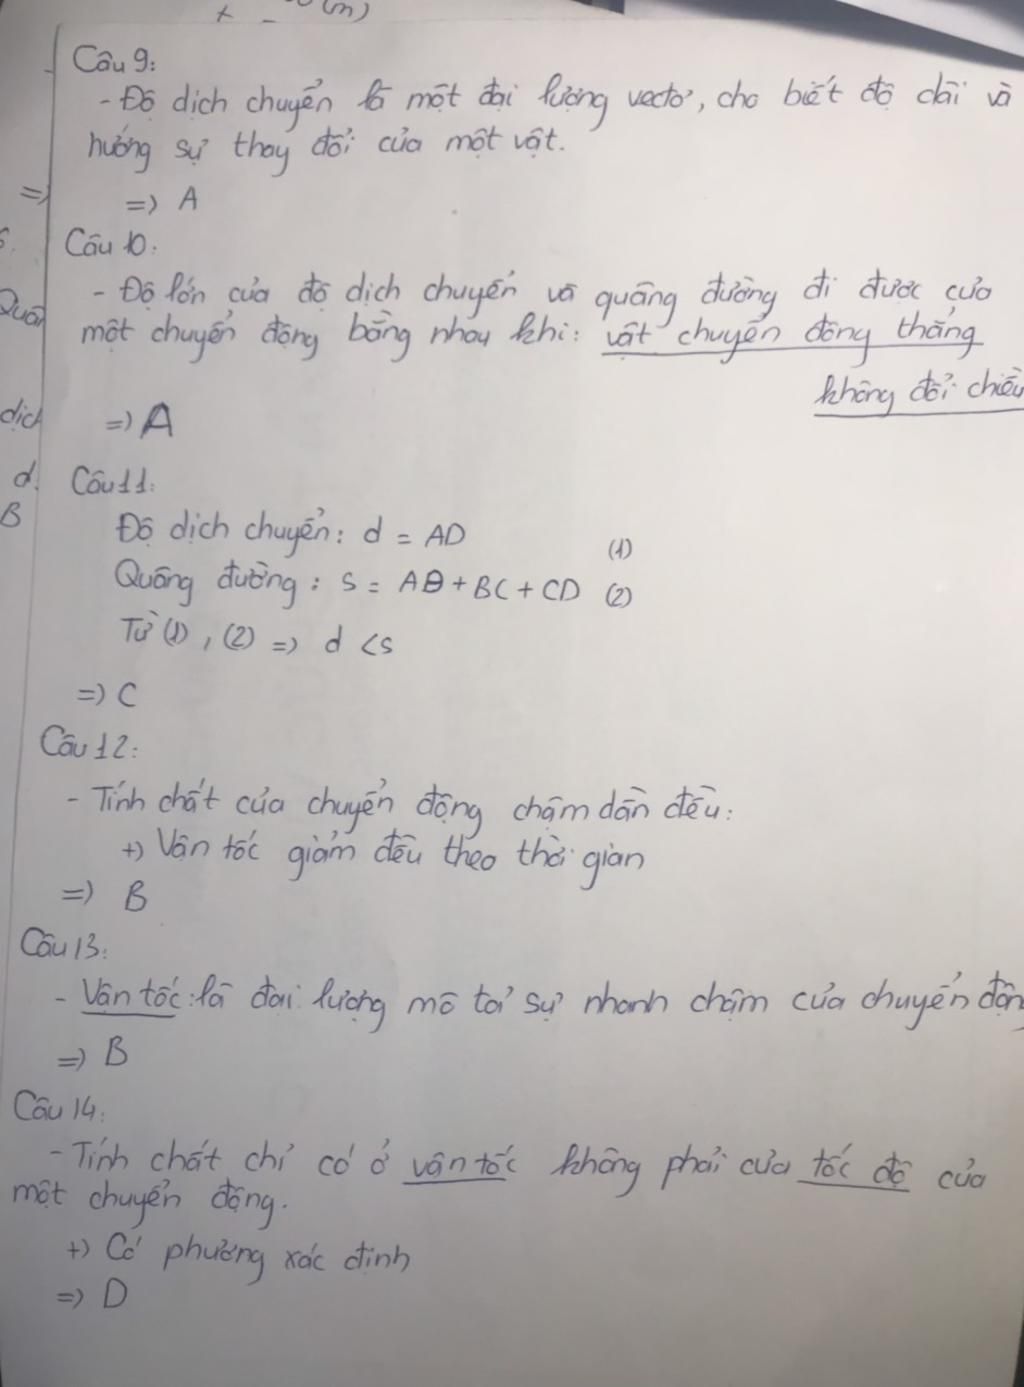 + (m)
Câu 9:
- Độ dịch chuyển là một đại lượng vectơ, cho biết độ dài và
hướng sự thay đổi của một vật.
=>
=> A
Câu 10.
- Độ lớn của độ dịch chuyển và quãng đường đi được của
một chuyển động bằng nhau khi: vật chuyển động thẳng
không đổi chiều
dịch
=> A
d.
Câu 11:
B
Độ dịch chuyển: d = AD (1)
Quãng đường: S = AB + BC + CD (2)
Từ (1), (2) => d < s
=> C
Câu 12:
- Tính chất của chuyển động chậm dần đều:
+) Vận tốc giảm đều theo thời gian
=> B
Câu 13:
- Vận tốc: là đại lượng mô tả sự nhanh chậm của chuyển độn
=> B
Câu 14:
- Tính chất chỉ có ở vận tốc không phải của tốc độ của
một chuyển động.
+) Có phương xác định
=> D